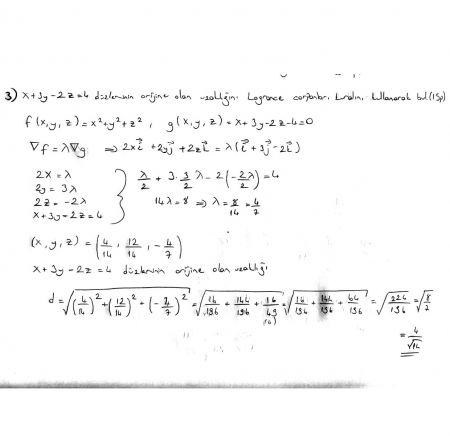 3) x+3y-2z=4 düzleminin orijine olan uzaklığını Lagrance çarpanları kuralını kullanarak bul.(15p)
f(x,y,z)=x²+y²+z² , g(x,y,z)=x+3y-2z-4=0
∇f=λ∇g ⇒ 2xi⃗+2yj⃗+2zk⃗=λ(i⃗+3j⃗-2k⃗)
2x=λ
2y=3λ
2z=-2λ
x+3y-2z=4
λ/2 + 3·3/2 λ - 2(-2λ/2)=4
14λ=8 ⇒ λ=8/14=4/7
(x,y,z)=(4/14, 12/14, -4/7)
x+3y-2z=4 düzleminin orijine olan uzaklığı
d=√((4/14)²+(12/14)²+(-4/7)²)=√(16/196+144/196+16/49)=√(16/196+144/196+64/196)=√(224/196)=√(8/7)
=4/√14